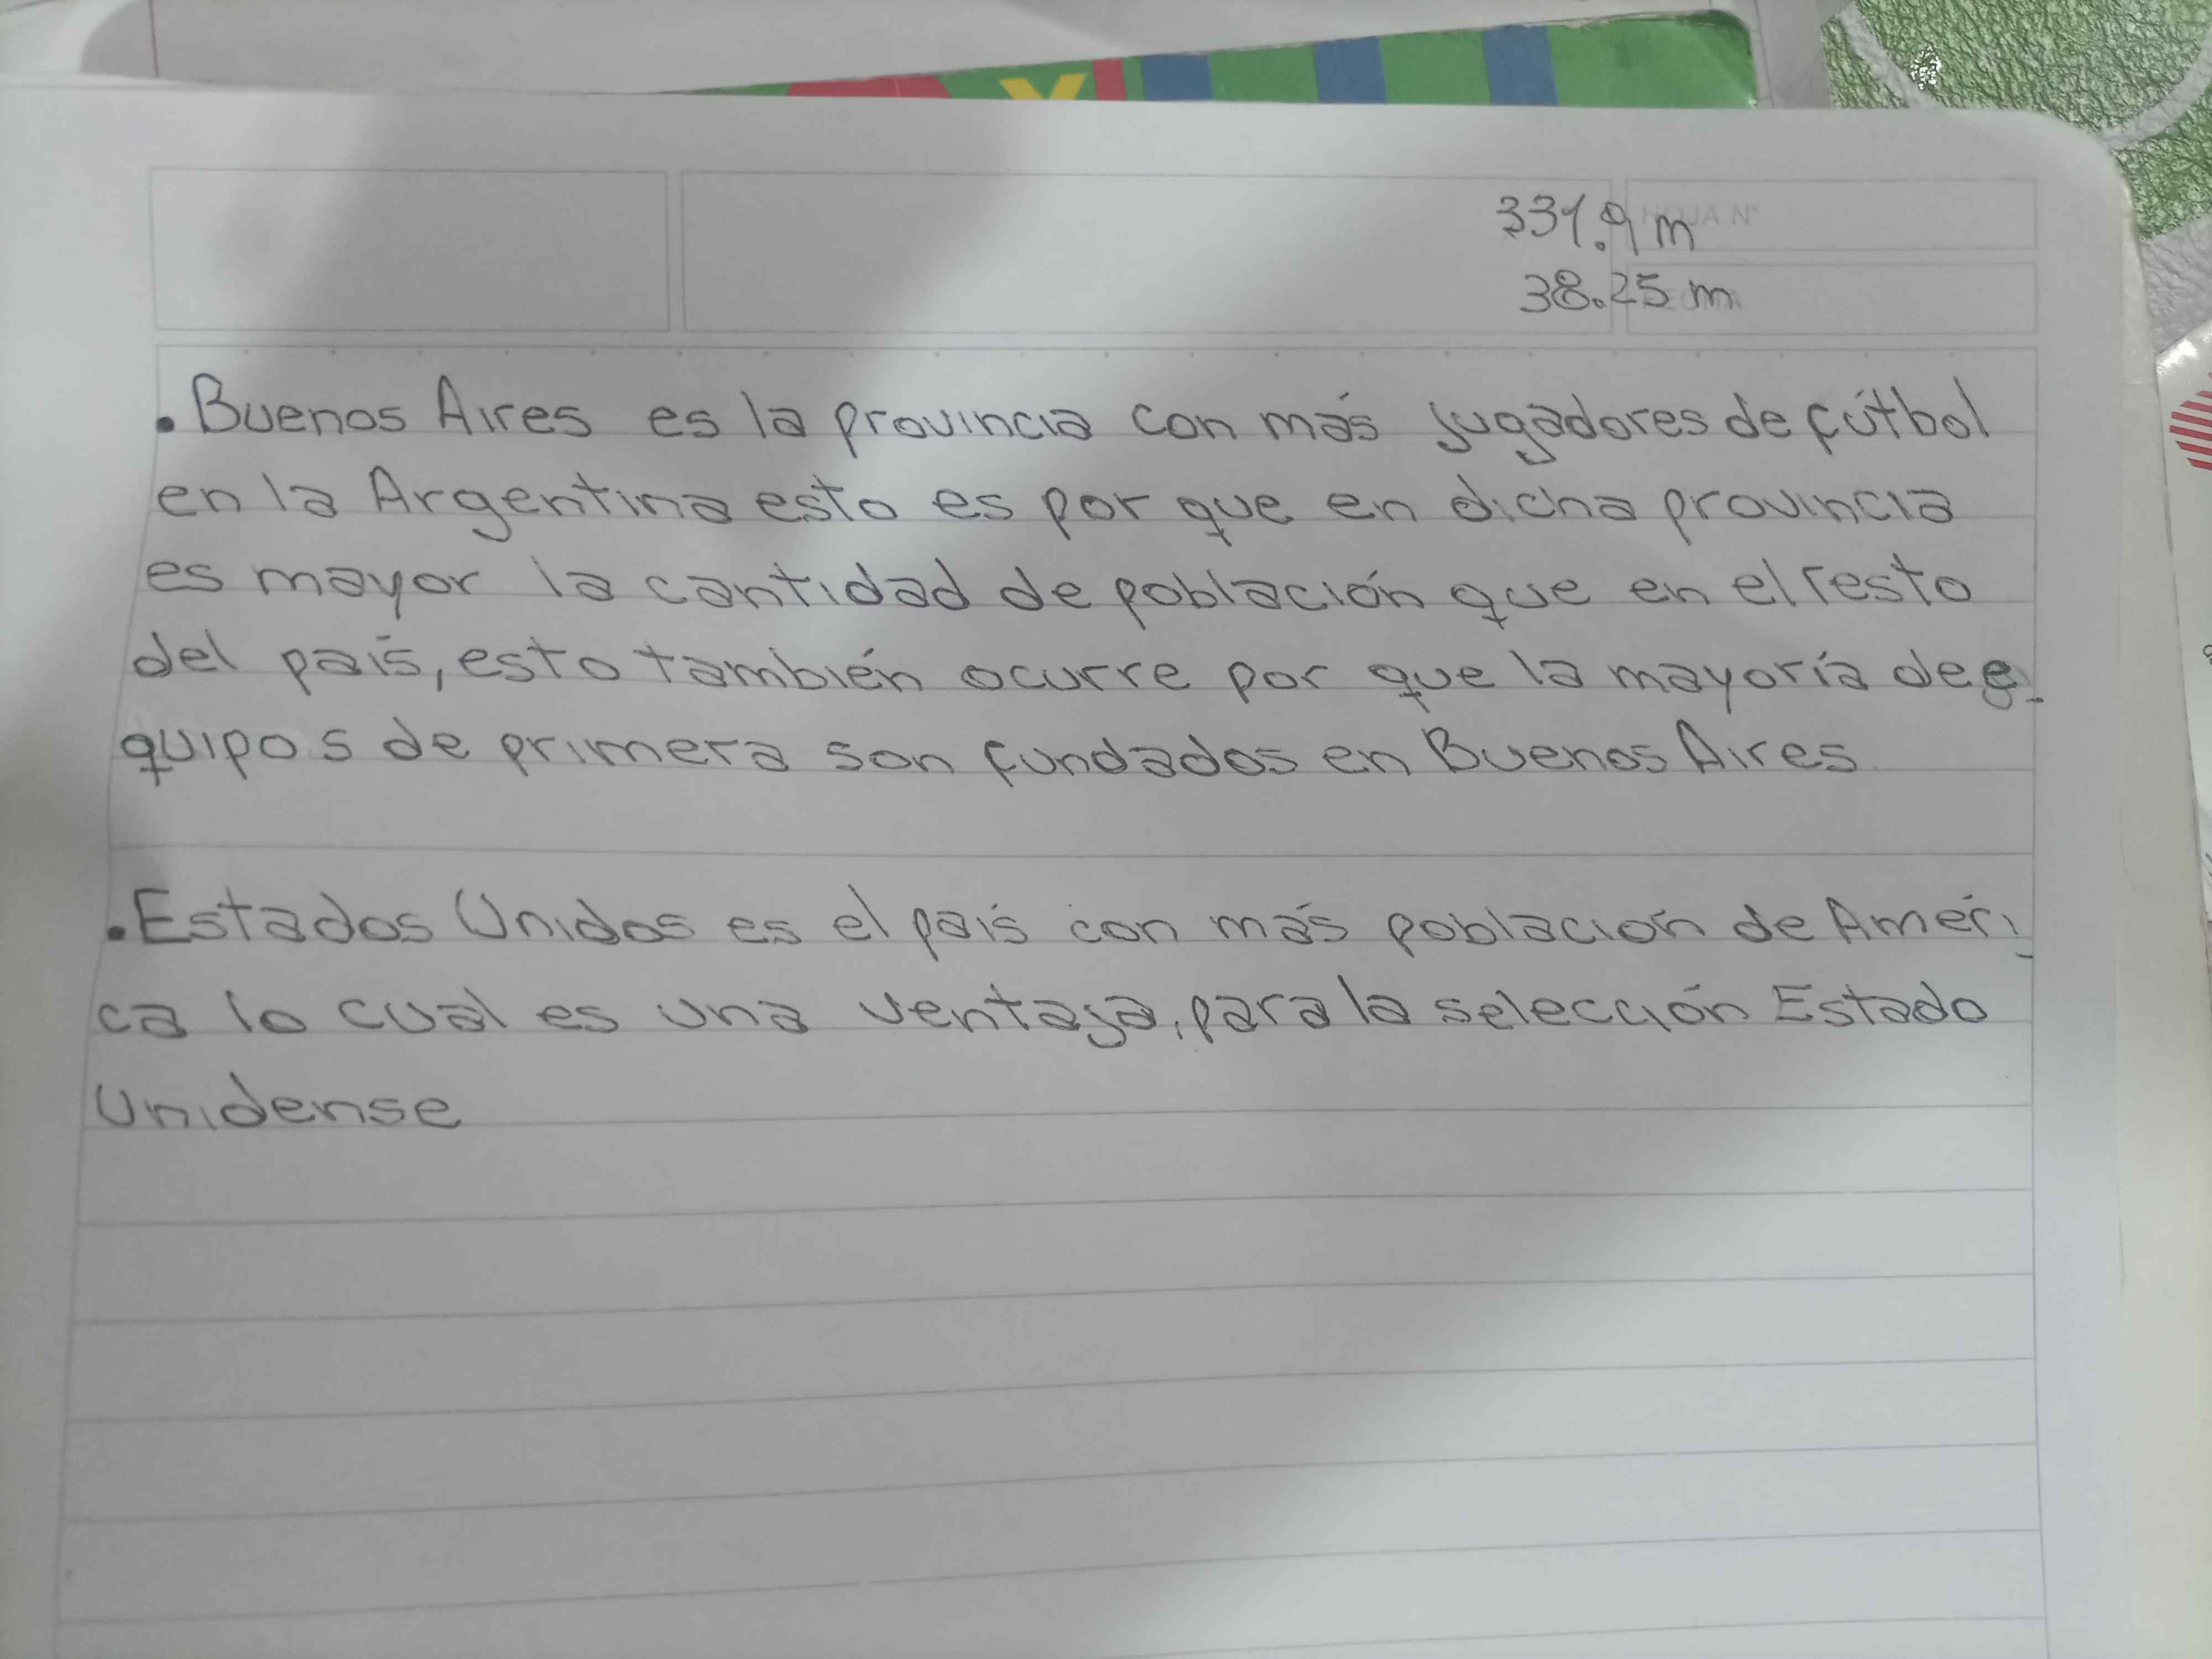 331.9 m
HOJA N°
38.25 m
. Buenos Aires es la provincia con más jugadores de fútbol
en la Argentina esto es por que en dicha provincia
es mayor la cantidad de población que en el resto
del país, esto también ocurre por que la mayoría de e-
quipos de primera son fundados en Buenos Aires
. Estados Unidos es el país con más población de Améri-
ca lo cual es una ventaja, para la selección Estado
Unidense